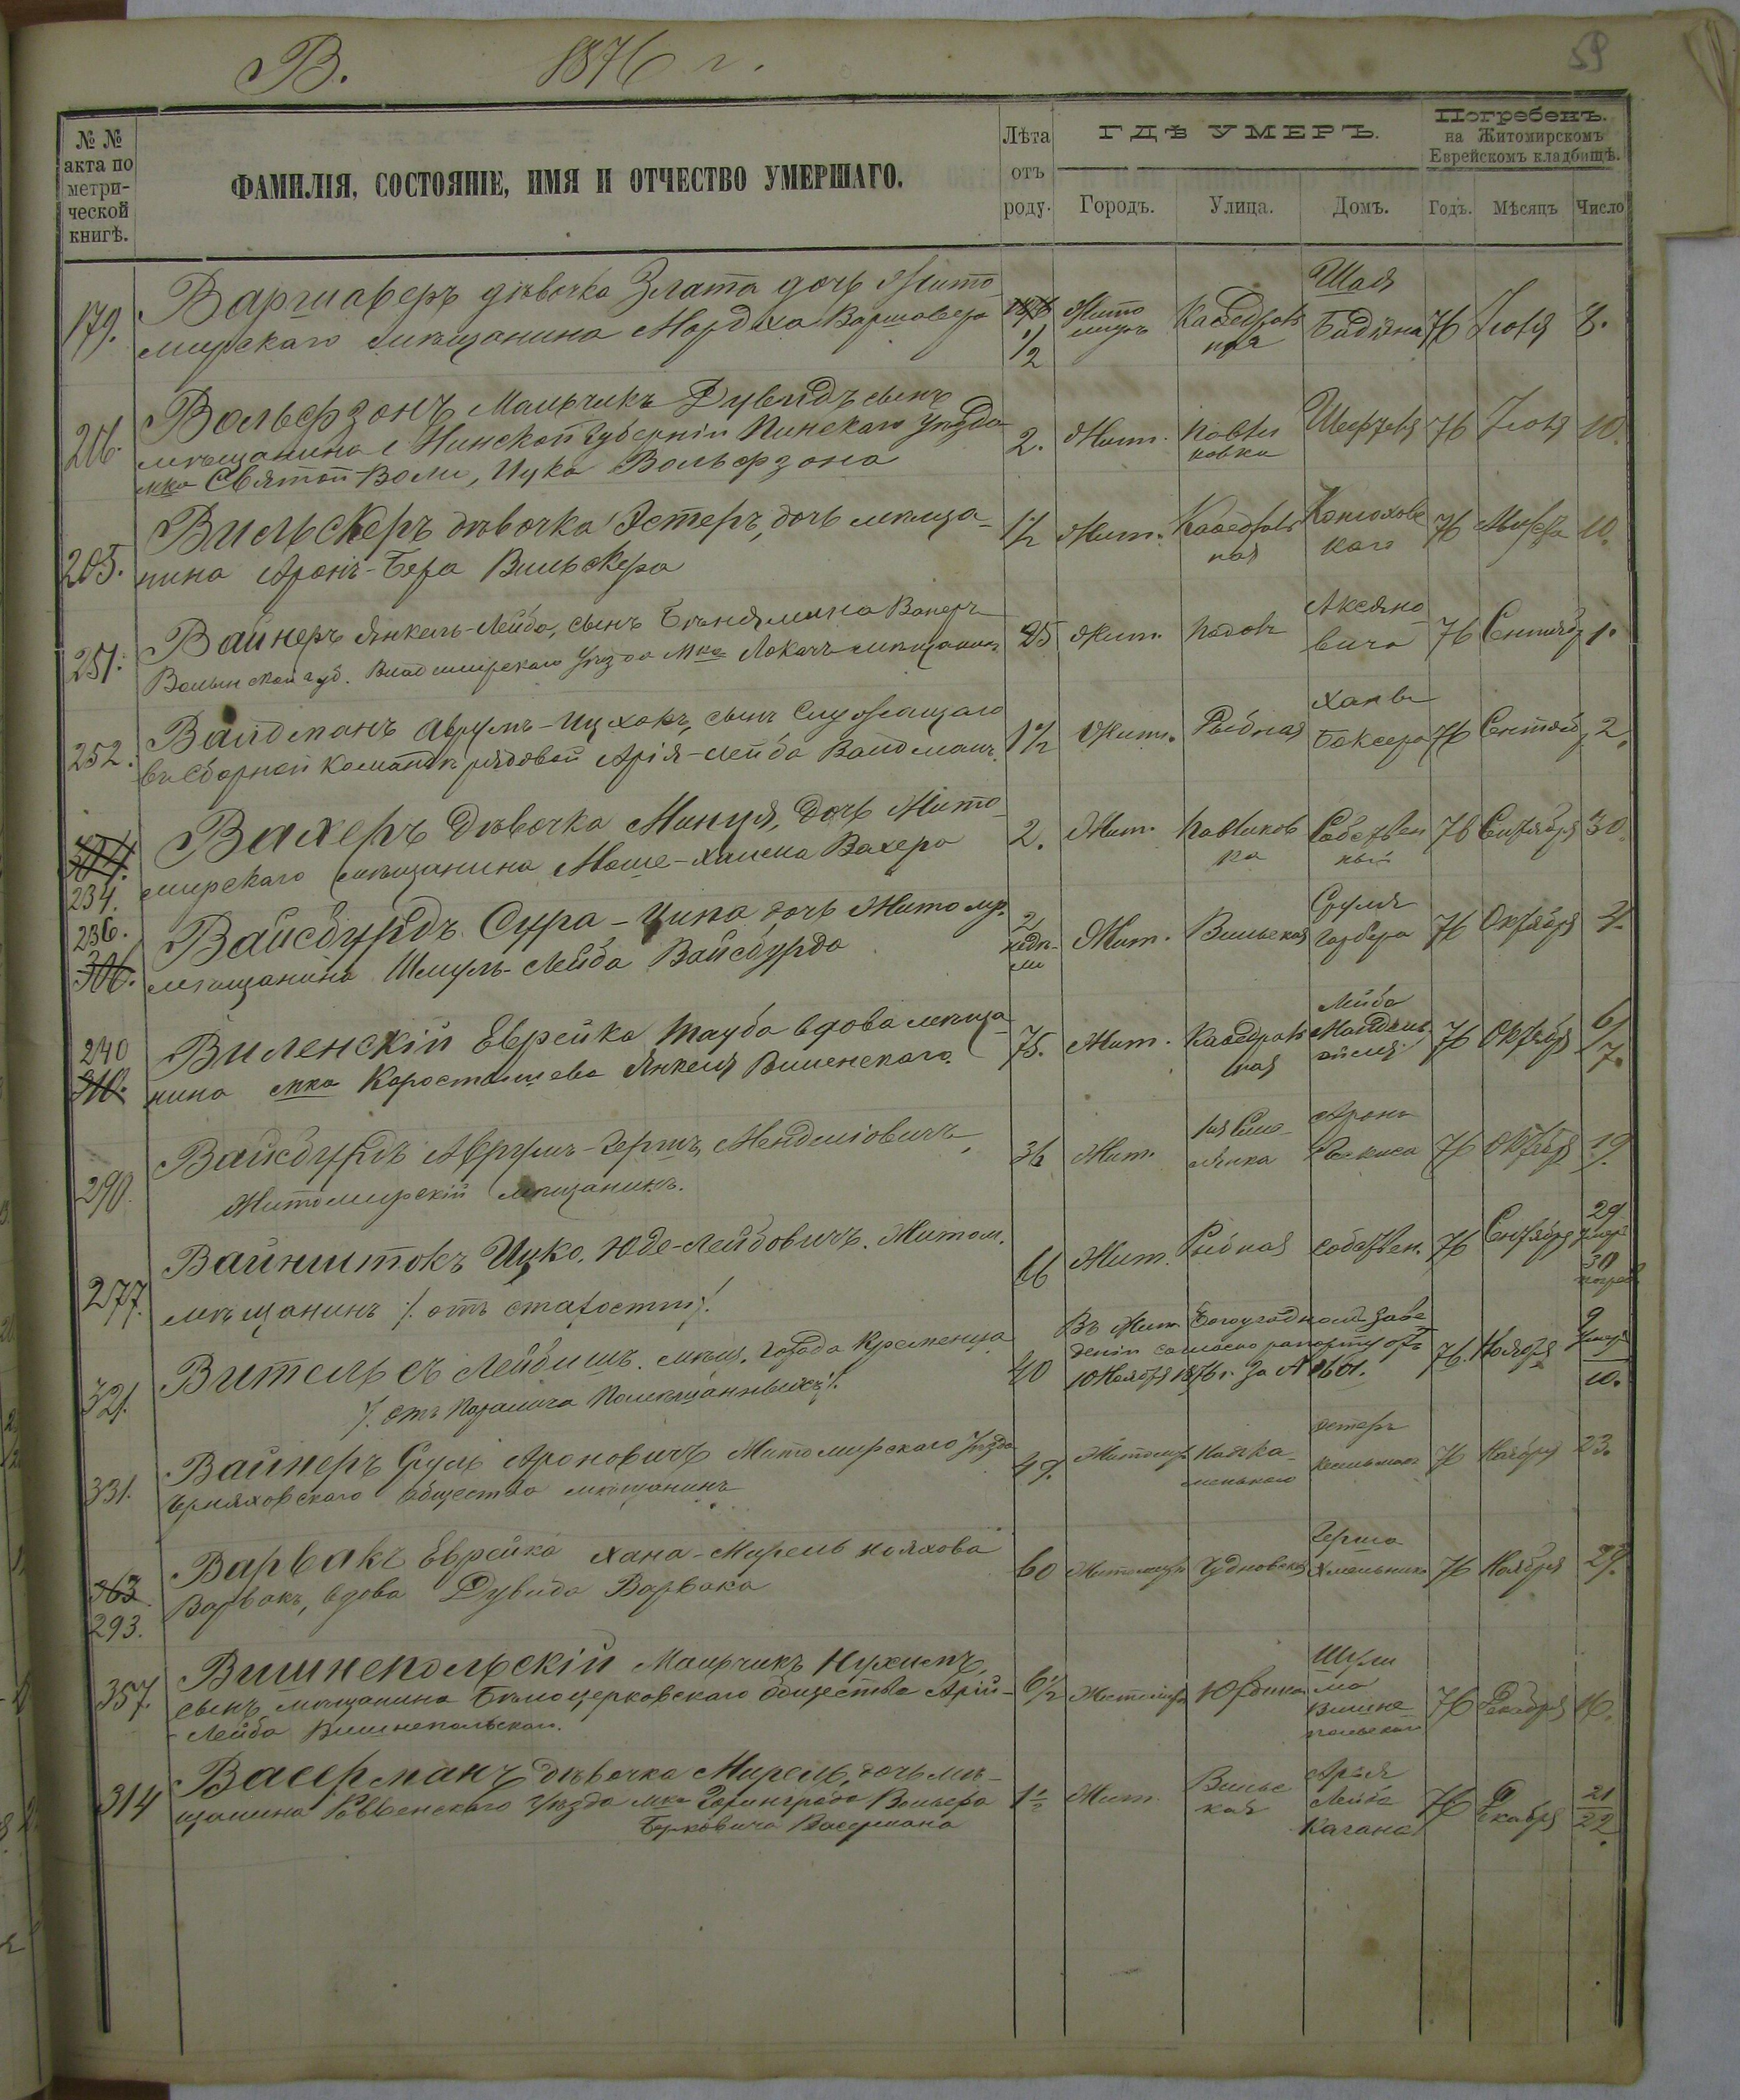 В. 1876 г. 59
№ №
акта по
метри-
ческой
книгѣ.
ФАМИЛІЯ, СОСТОЯНІЕ, ИМЯ И ОТЧЕСТВО УМЕРШАГО.
Лѣта
отъ
роду.
ГДѢ УМЕРЪ.
Городъ. Улица. Домъ.
Погребенъ.
на Житомирскомъ
Еврейскомъ кладбищѣ.
Годъ. Мѣсяцъ Число
179. Варшаверъ дѣвочка Злата дочь Жито-
мирскаго мѣщанина Мордха Варшавера
1/2 Жито
миръ Каѳедраль
ная Шая
76 Іюля 8.
216. Вольфзонъ Мальчикъ Дувидъ сынъ
мѣщанина Минской Губерніи Пинскаго уѣзда
мка Святой-Воли, Ицка Вольфзона
2. Жит. Павли
ковка 76 Іюля 10.
205. Вильскеръ дѣвочка Эстеръ, дочь мѣща-
нина Аронъ-Бера Вильскера
1 1/2 Жит. Каѳедраль
ная Конюховс
каго 76 10.
251. Вайнеръ Янкель-Лейба, сынъ Беньямина
Волынской губ. Владимирскаго уѣзда мка Локачъ мѣщанинъ
25 Жит. Аксяно
вича 76 1.
252. Вайдманъ Аврумъ-Ицхокъ, сынъ Служащаго
въ Сборной командѣ рядовой Арія-Лейба Вайдманъ.
1 1/2 Жит. Рыбная Хаявы
Боксера 76 2.
234. Вахеръ Дѣвочка Минця, дочь Жито-
мирскаго мѣщанина Моше-Хаима Вахера
2. Жит. Павликов
ка Собствен
ный 76 Сентября 30.
236.
306. Вайсбурдъ Сура-Ципа, дочь Житомир.
мѣщанина Шмуль-Лейба Вайсбурда
2
недѣ-
ли Жит. Вильская Сруля
Гарбера 76 Октября 4.
240
310. Виленскій Еврейка Тауба вдова мѣща-
нина мка Коростышева Янкеля Виленскаго.
75. Жит. Каѳедраль
ная Лейба
76 Октября 6/7.
290. Вайсбурдъ Аврумъ-Гершъ Менделіовичъ,
Житомирскій мѣщанинъ.
36 Жит. Аронъ
76 Октября 19.
277. Вайнштокъ Ицко. Юде-Лейбовичъ. Житом.
мѣщанинъ /. отъ старости /.
66 Жит. Рыбная собствен. 76 Сентября 29
умеръ
30
погреб
321. Вительсъ Лейбишъ. мѣщ. города Кременца
/. отъ Паралича
40 Въ Жит. Богоугодномъ Заве
деніи согласно рапорту отъ
10 Ноября 1876 г. за № 2601.
76. Ноября 9
умеръ
10.
331. Вайнеръ Сруль Ароновичъ Житомирскаго уѣзда
Черняховскаго общества мѣщанинъ
47. Житомиръ Эстеръ
76 Ноября 23.
363
293. Варвакъ Еврейка Хана-Мирель
Варвакъ, вдова Дувида Варвака
60 Житомиръ Чудновская Герша
Хмельника 76 Ноября 29.
357. Вишнепольскій Мальчикъ Нухимъ,
сынъ мѣщанина Бѣлоцерковскаго Общества Арій-
-Лейба Вишнепольскаго.
6 1/2 Житомиръ Юрдика Шули
ма
Вишне
польскаго 76 Декабря 16.
314 Васерманъ дѣвочка Мирель, дочь мѣ-
щанина Ровенскаго уѣзда мка Вольфа
Берковича Васермана
1 1/2 Жит. Вильс
кая Арія
Лейба
Кагана 76 Декабря 21
22.